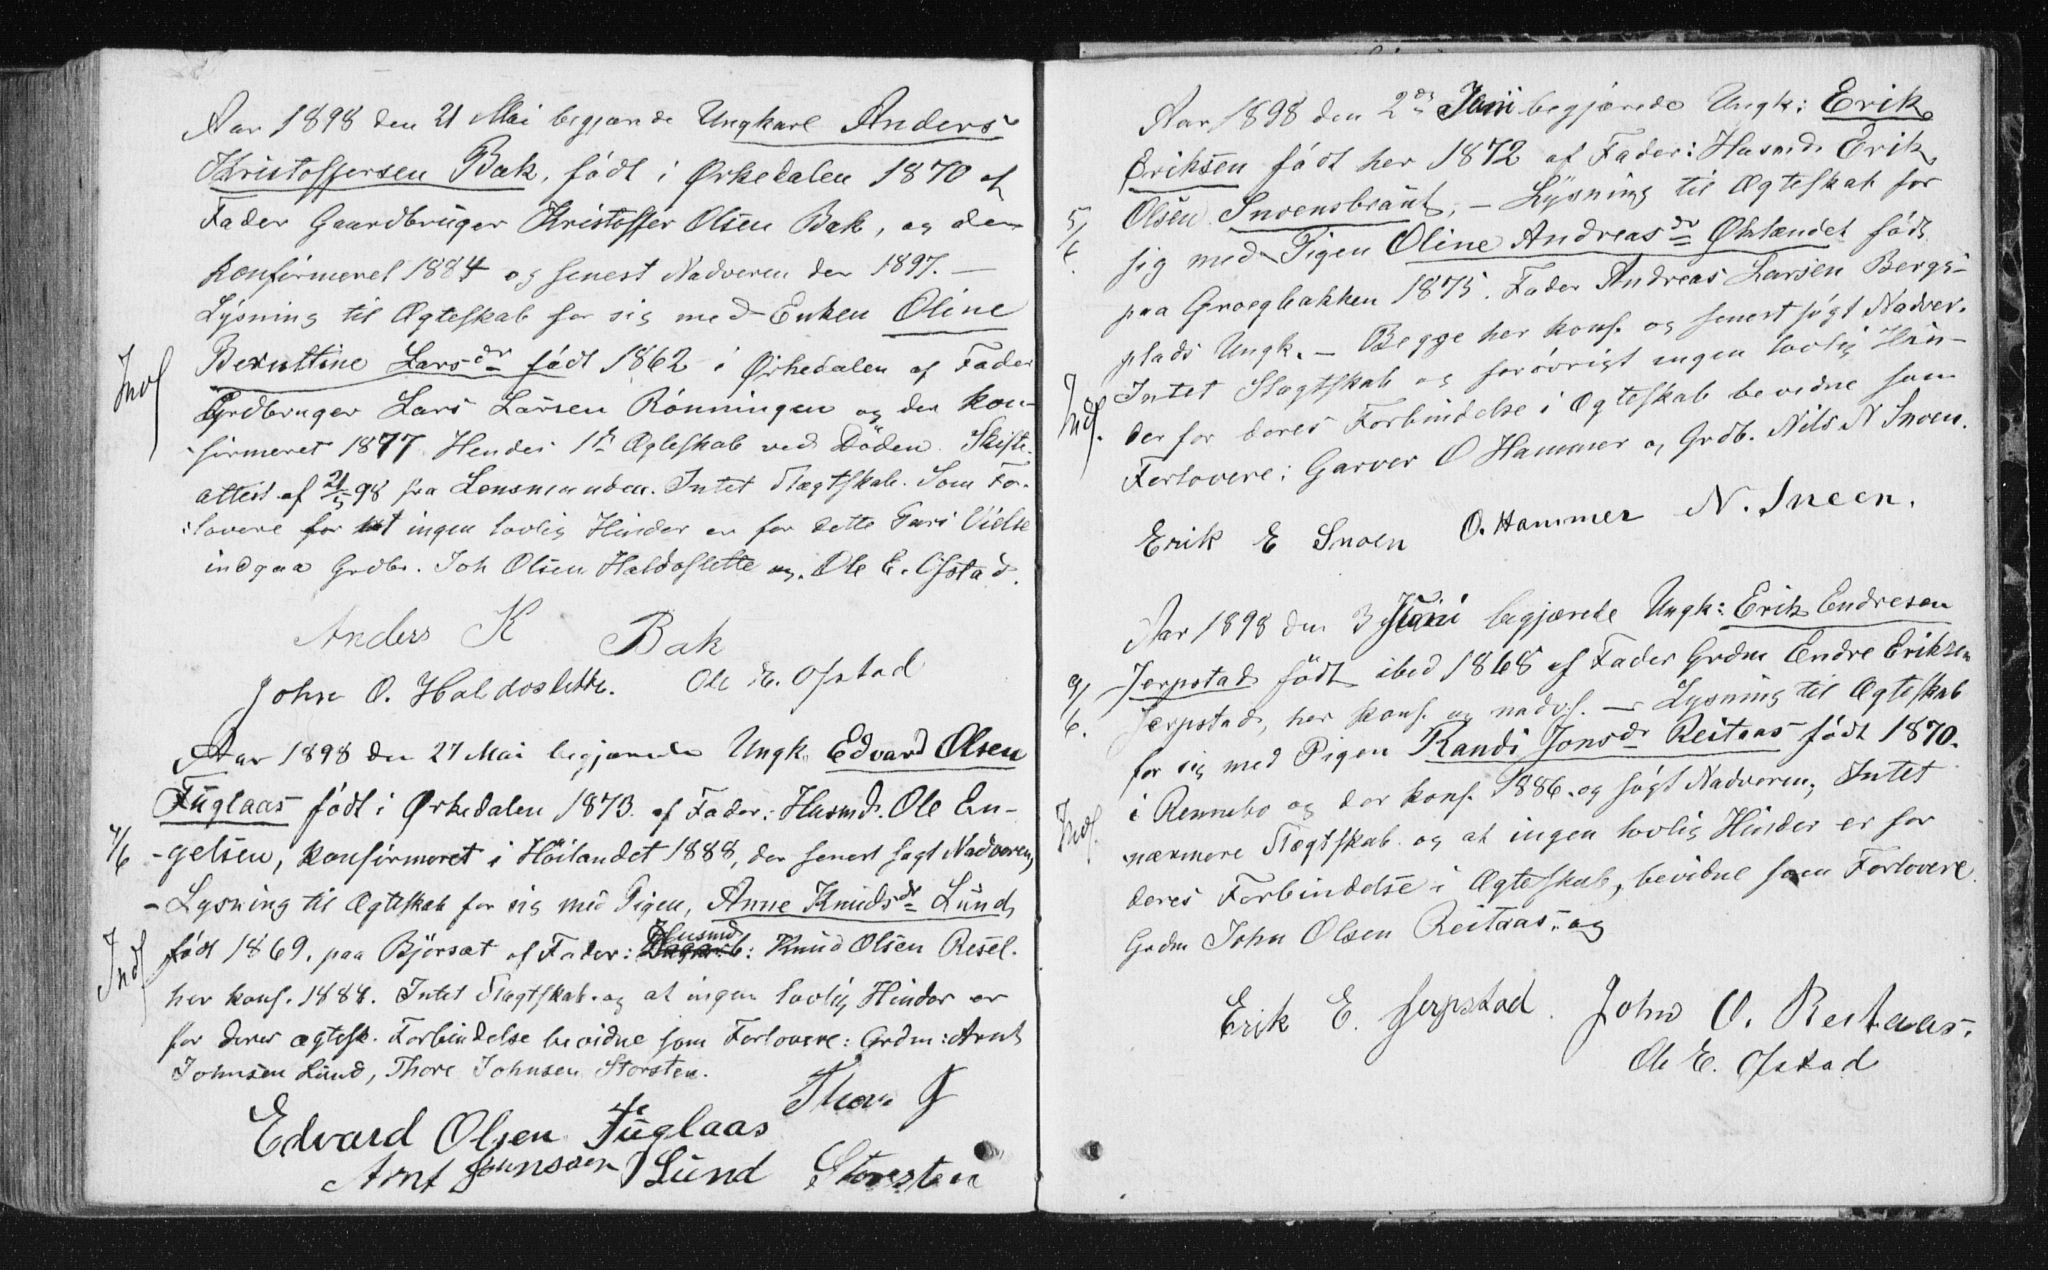 Aar 1898 den 21 Mai begjærede Ungkarl Anders
Kristoffersen Bak, født i Ørkedalen 1870 af
Fader Gaardbruger Kristoffer Olsen Bak, og der
konfirmeret 1884 og senest Nadveren der 1897. —
Lysning til Ægteskab for sig med Enken Oline
Berntine Larsdr født 1862 i Ørkedalen af Fader
Indf
Grdbruger Lars Larsen Rönningen og der kon-
firmeret 1877 Hendes 1ste Ægteskab ved Döden. Skifte-
attest af 21/5 98 fra Lensmanden. Intet Slægtskab. Som For-
lovere for at ingen lovlig Hinder er for dette Pars Vielse
indgaa Grdbr. Joh Olsen Haldoslette og Ole E. Ofstad.
Anders K Bak
John O. Haldoslette. Ole E. Ofstad
Aar 1898 den 27 Mai begjærede Ungk. Edvard Olsen
Fuglaas født i Ørkedalen 1873 af Fader: Husmd. Ole En-
7/6
gelsen, konfirmeret i Höilandet 1888, der senest søgt Nadveren,
- Lysning til Ægteskab for sig med Pigen, Anne Knudsdr Lund,
Husmd
født 1869, paa Björsæt af Fader: : Knud Olsen Resel.
Indf
her konf. 1884. Intet Slægtskab og at ingen lovlig Hinder er
for deres ægtesk. Forbindelse bevidne som Forlovere: Grdm: Arnt
Johnsen Lund, Thore Johnsen Storsten.
Edvard Olsen Fuglaas Thore J
Arnt Johnsen Lund Storsten
Aar 1898 den 2den Juni begjærede Ungk: Erik
Eriksen født her 1872 af Fader: Husmd. Erik
5/6.
Olsen Snoensbraut, — Lysning til Ægteskab for
sig med Pigen Oline Andreasdr Øklandet født
paa Groegbakken 1875. Fader Andreas Larsen Bergs-
plads Ungk. — Begge her konf. og senest søgt Nadver.
Indf.
Intet Slægtskab og forövrigt ingen lovlig Hin-
der for deres Forbindelse i Ægteskab bevidne som
Forlovere: Garver O Hammer og Grdb. Nils N Snoen.
Erik E Snoen O. Hammer N. Sneen.
Aar 1898 den 3 Juni begjærede Ungk: Erik Endresen
9/6.
Jerpstad født ibid 1868 af Fader Grdm Endre Eriksen
Jerpstad, her konf. og nadvf. — Lysning til Ægteskab
for sig med Pigen Randi Jonsdr Reitaas født 1870.
i Rennebo og der konf. 1886. og søgt Nadveren, Intet
Indf.
nærmere Slægtskab og at ingen lovlig Hinder er for
deres Forbindelse i Ægteskab, bevidne som Forlovere.
Grdm John Olsen Reitaas og
Erik E. Jerpstad. John O. Reitaas.
Ole E. Ofstad